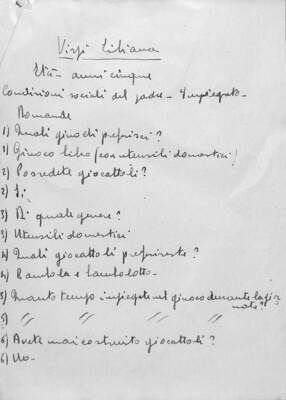 Vispi Liliana
Età - anni cinque
Condizioni sociali del padre - Impiegato -
Domande
1) Quali giuochi preferisci?
1) Giuoco libro (con utensili domestici)
2) Possedete giocattoli?
2) Si
3) Di quale genere?
3) Utensili domestici
4) Quali giocattoli preferireste?
4) Bambola e bambolotto -
5) Quanto tempo impiegate nel giuoco durante la gior-
nata?
5) " " " "
6) Avete mai costruito giocattoli?
6) No -